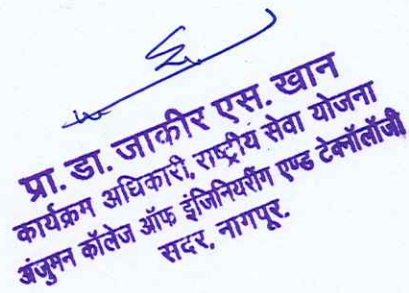 प्रा. डा. जाकीर एस. खान
कार्यक्रम अधिकारी, राष्ट्रीय सेवा योजना
अंजुमन कॉलेज ऑफ इंजिनियरींग एण्ड टेक्नॉलॉजी
सदर, नागपूर.